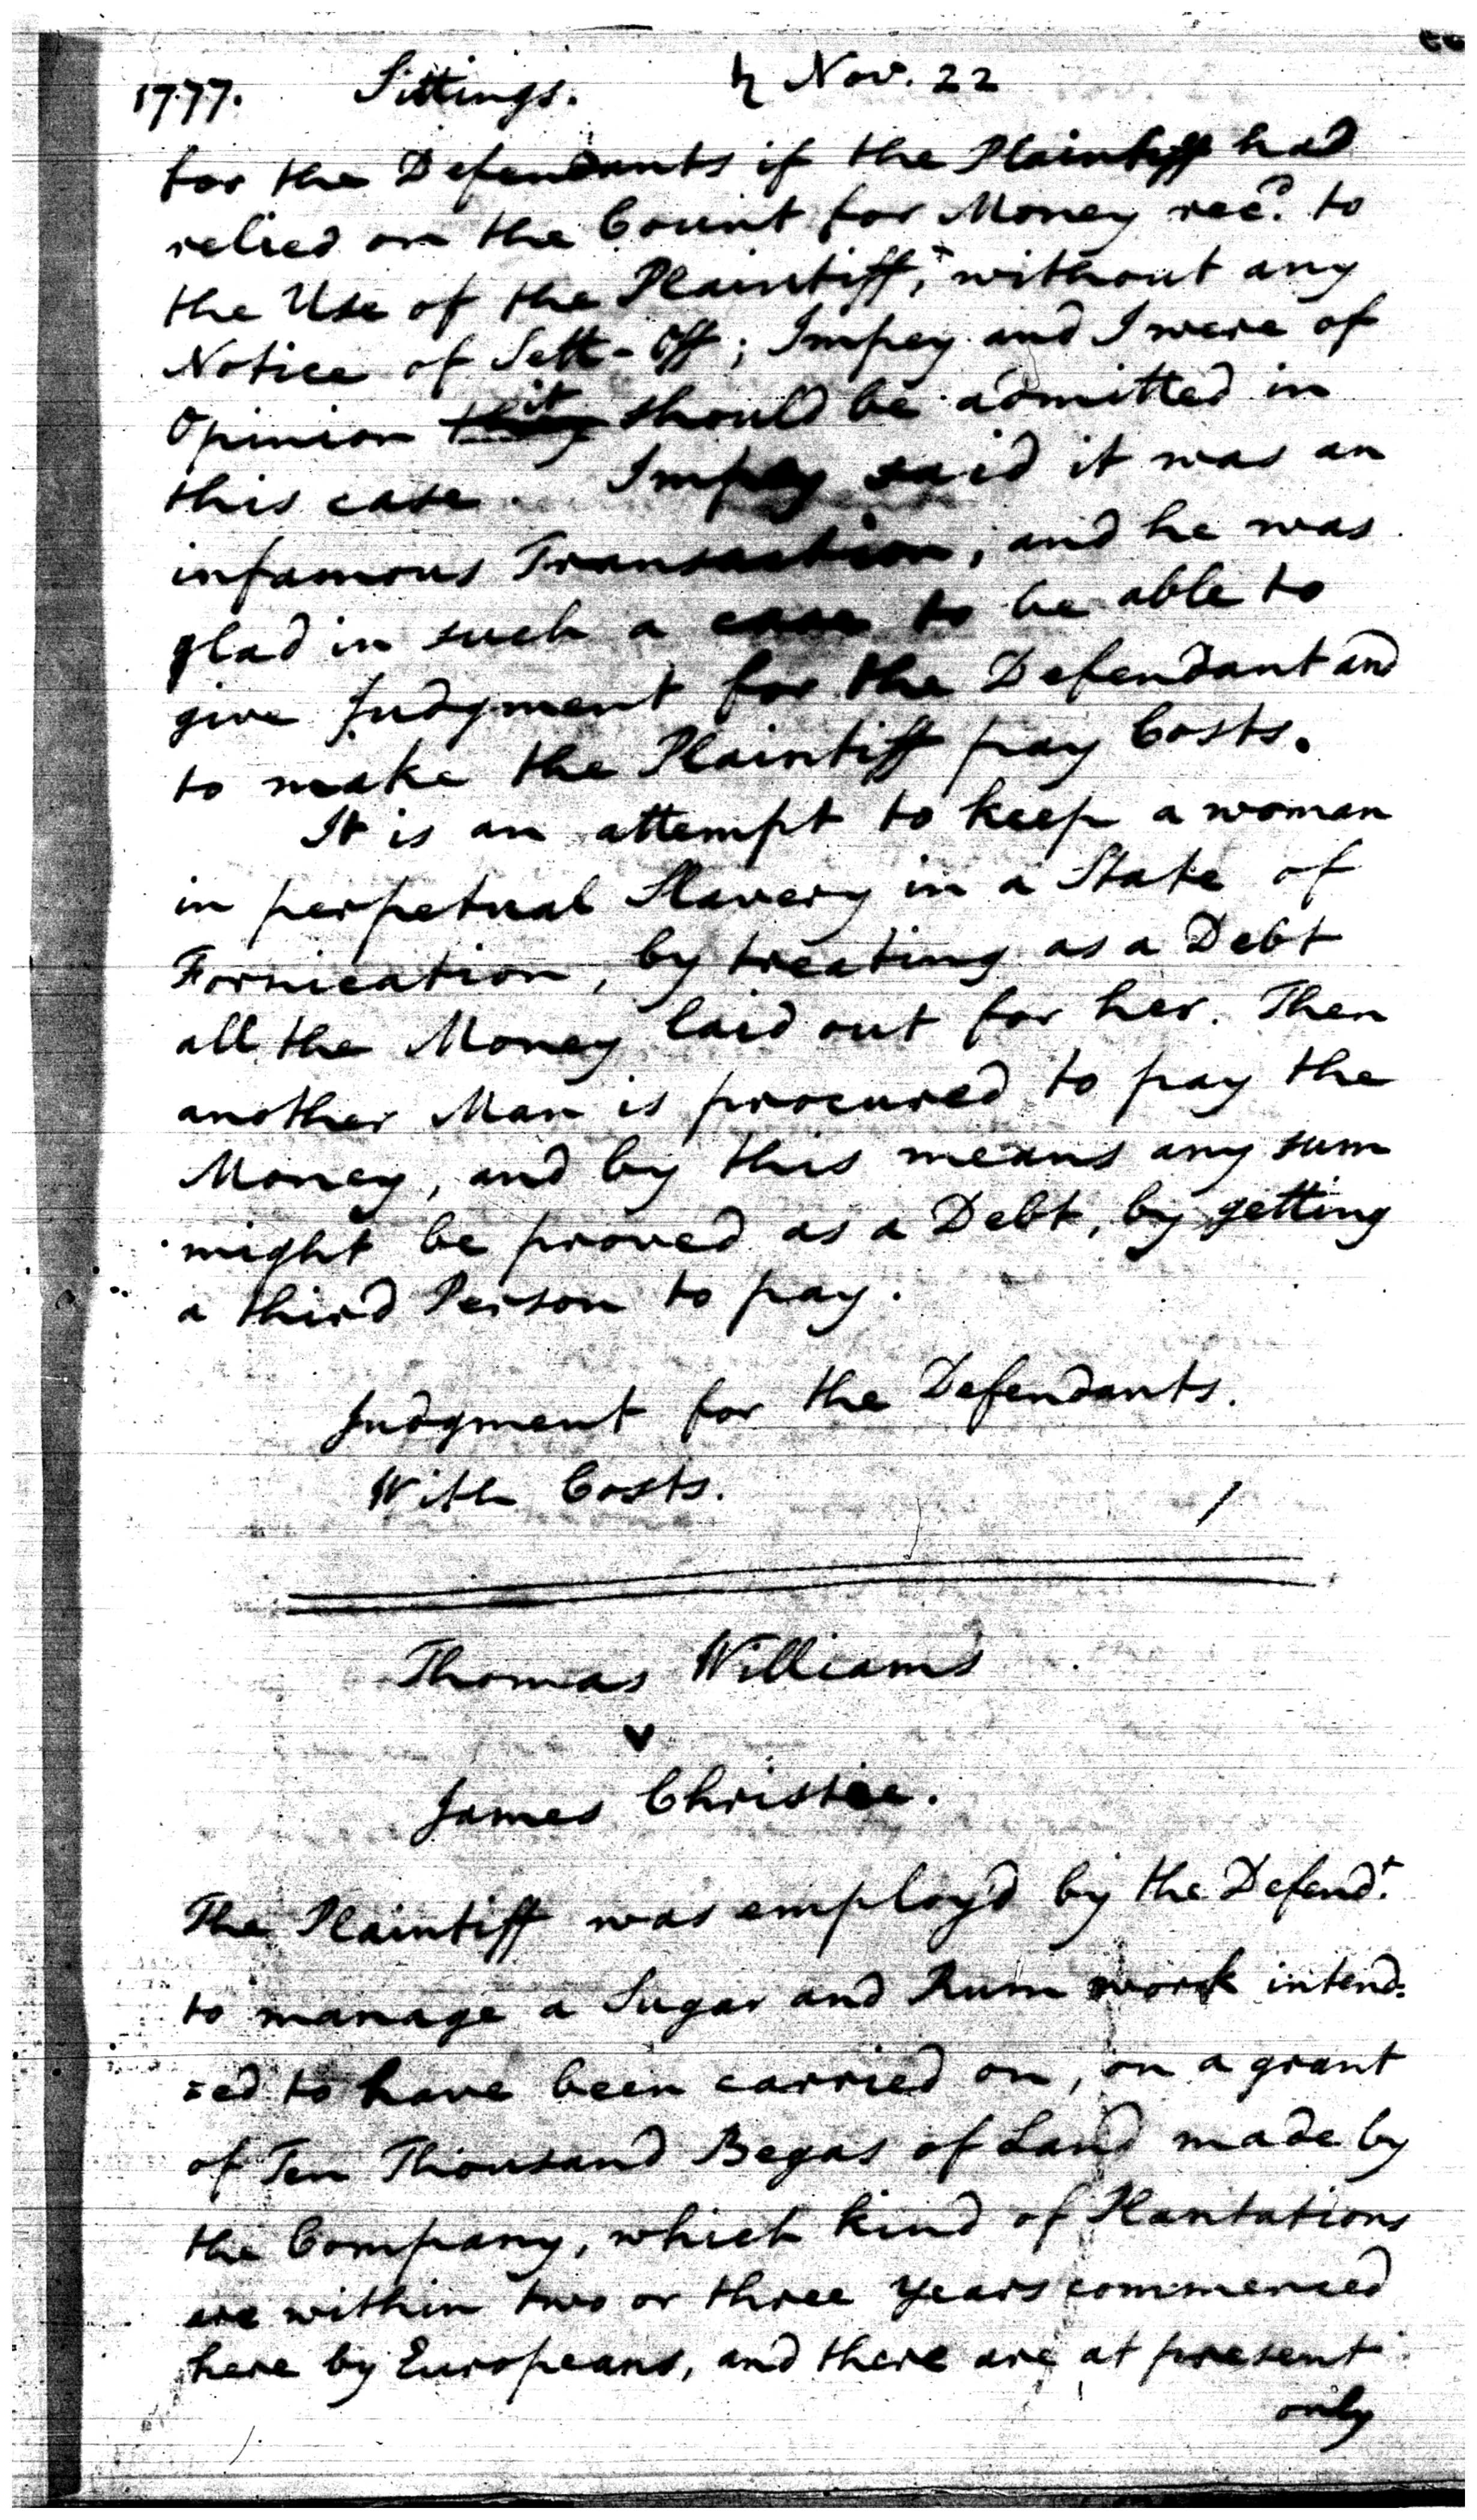 1777. Sittings. ♄ Nov. 22
for the Defendants if the Plaintiff had
relied on the Count for Money rec.d to
the Use of the Plaintiff, without any
Notice of Sett-Off; Impey and I were of
Opinion it should be admitted in
this case. Impey said it was an
infamous Transaction; and he was
glad in such a case to be able to
give Judgment for the Defendant and
to make the Plaintiff pay Costs.
It is an attempt to keep a woman
in perpetual Slavery in a State of
Fornication, by treating as a Debt
all the Money laid out for her. Then
another Man is procured to pay the
Money, and by this means any sum
might be proved as a Debt, by getting
a third Person to pay.
Judgment for the Defendants.
With Costs.
Thomas Williams
v
James Christie.
The Plaintiff was employ'd by the Defend.t
to manage a Sugar and Rum work intend=
=ed to have been carried on, on a grant
of Ten Thousand Begas of Land made by
the Company, which kind of Plantations
are within two or three years commenced
here by Europeans, and there are at present
only